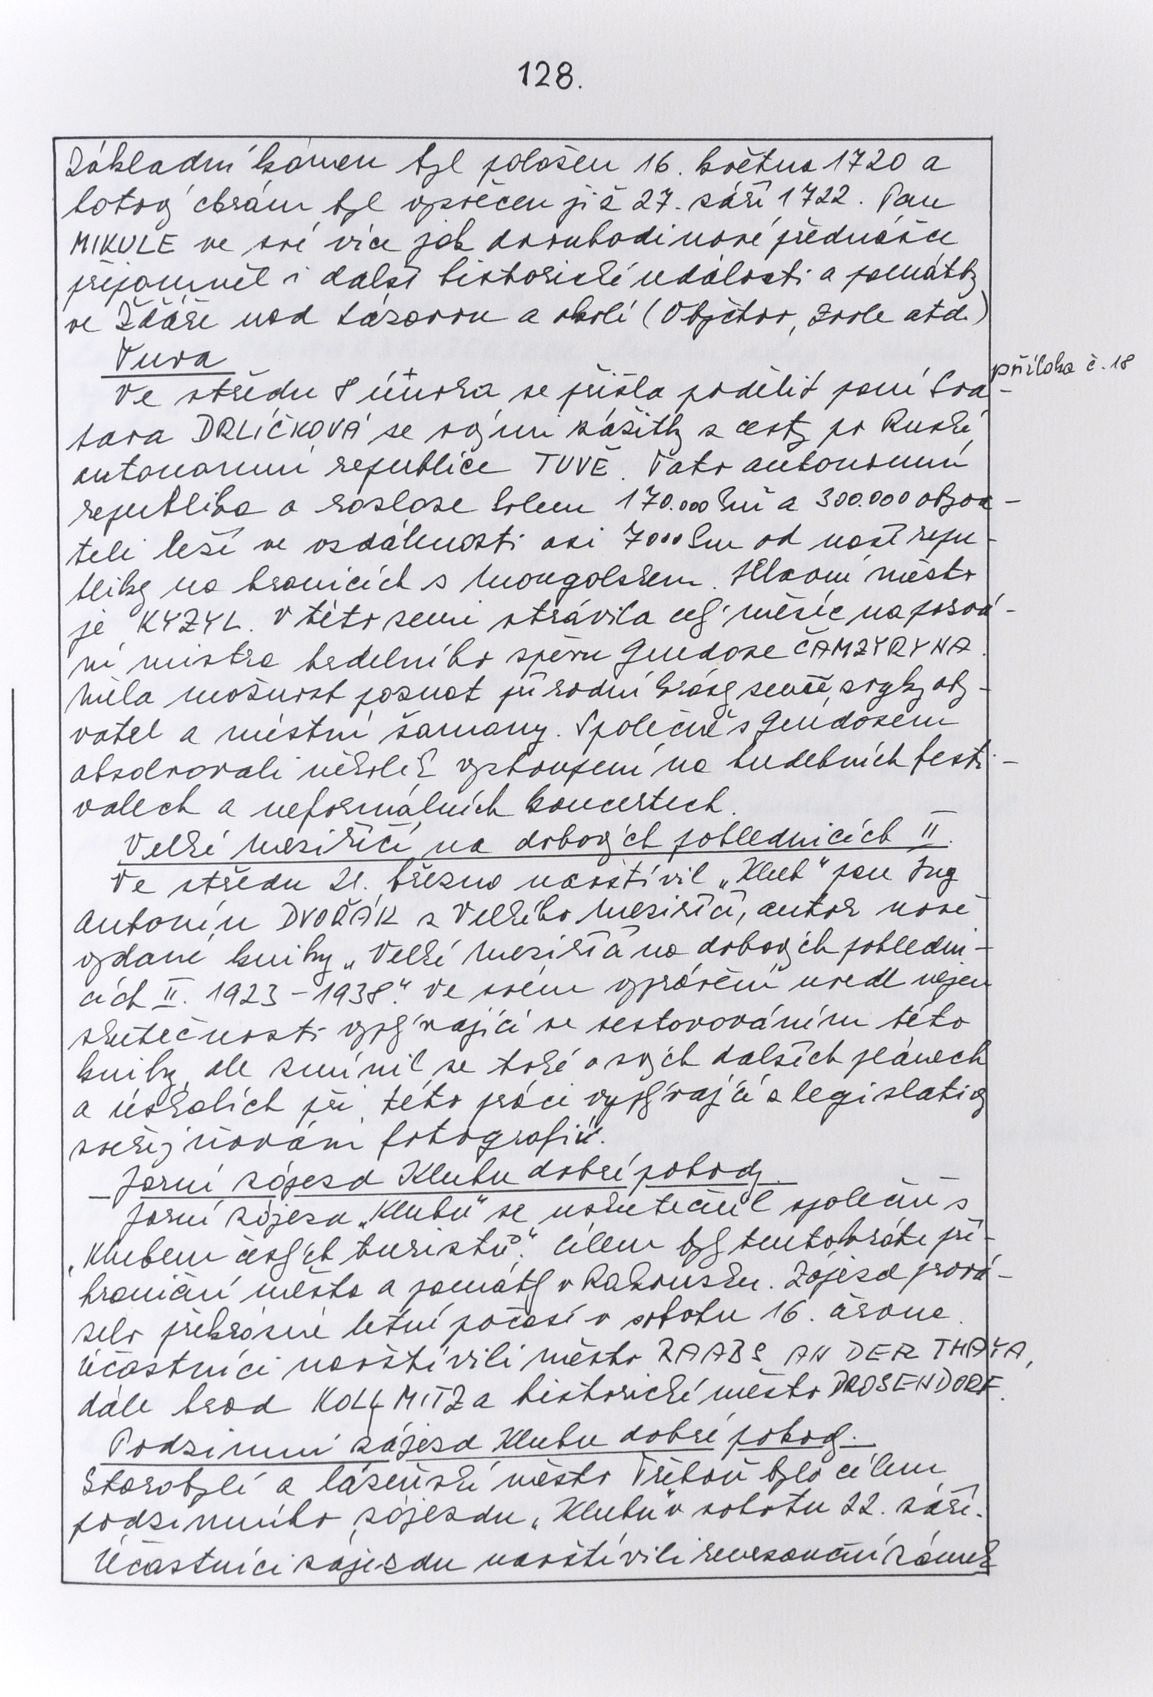 128.
Základní kámen byl položen 16. května 1720 a
hotový chrám byl vysvěcen již 27. září 1722. Pan
MIKULE ve své více jak dvouhodinové přednášce
připomněl i další historické události a památky
ve Žďáře nad Sázavou a okolí (Obyčtov, Zvole atd.)
Tuva
příloha č. 18
Ve středu 8 února se přišla podělit paní Bar-
bara DRLÍČKOVÁ se svými zážitky z cesty po Ruské
autonomní republice TUVĚ. Tato autonomní
republika o rozloze kolem 170.000 km a 300.000 obyva-
teli leží ve vzdálenosti asi 7000 km od naší repu-
bliky na hranicích s Mongolskem. Hlavní město
je KYZYL. V této zemi strávila celý měsíc na pozvá-
ní mistra hrdelního zpěvu Gendose ČAMZYRYNA.
Měla možnost poznat přírodní krásy země, zvyky oby-
vatel a místní šamany. Společně s Gendosem
absolvovali několik vystoupení na hudebních festi-
valech a neformálních koncertech.
Velké Meziříčí na dobových pohlednicích II.
Ve středu 21. března navštívil „Klub" pan Ing
Antonín DVOŘÁK z Velkého Meziříčí, autor nově
vydané knihy „Velké Meziříčí na dobových pohledni-
cích II. 1923 - 1938." Ve svém vyprávění uvedl nejen
skutečnosti vyplývající se sestavováním této
knihy, ale zmínil se také o svých dalších plánech
a úskalích při této práci vyplývající z legislativy
zveřejňování fotografií.
Jarní zájezd Klubu dobré pohody.
Jarní zájezd „Klubu" se uskutečnil společně s
„Klubem českých turistů." Cílem byly tentokráte pří-
hraniční města a památky v Rakousku. Zájezd prová-
zelo překrásné letní počasí v sobotu 16. června.
Účastníci navštívili město RAABS AN DER THAYA,
dále hrad KOLLMITZ a historické město DROSENDORF.
Podzimní zájezd Klubu dobré pohody.
Starobylé a lázeňské město Třeboň bylo cílem
podzimního zájezdu „Klubu" v sobotu 22. září.
Účastníci zájezdu navštívili renesanční zámek